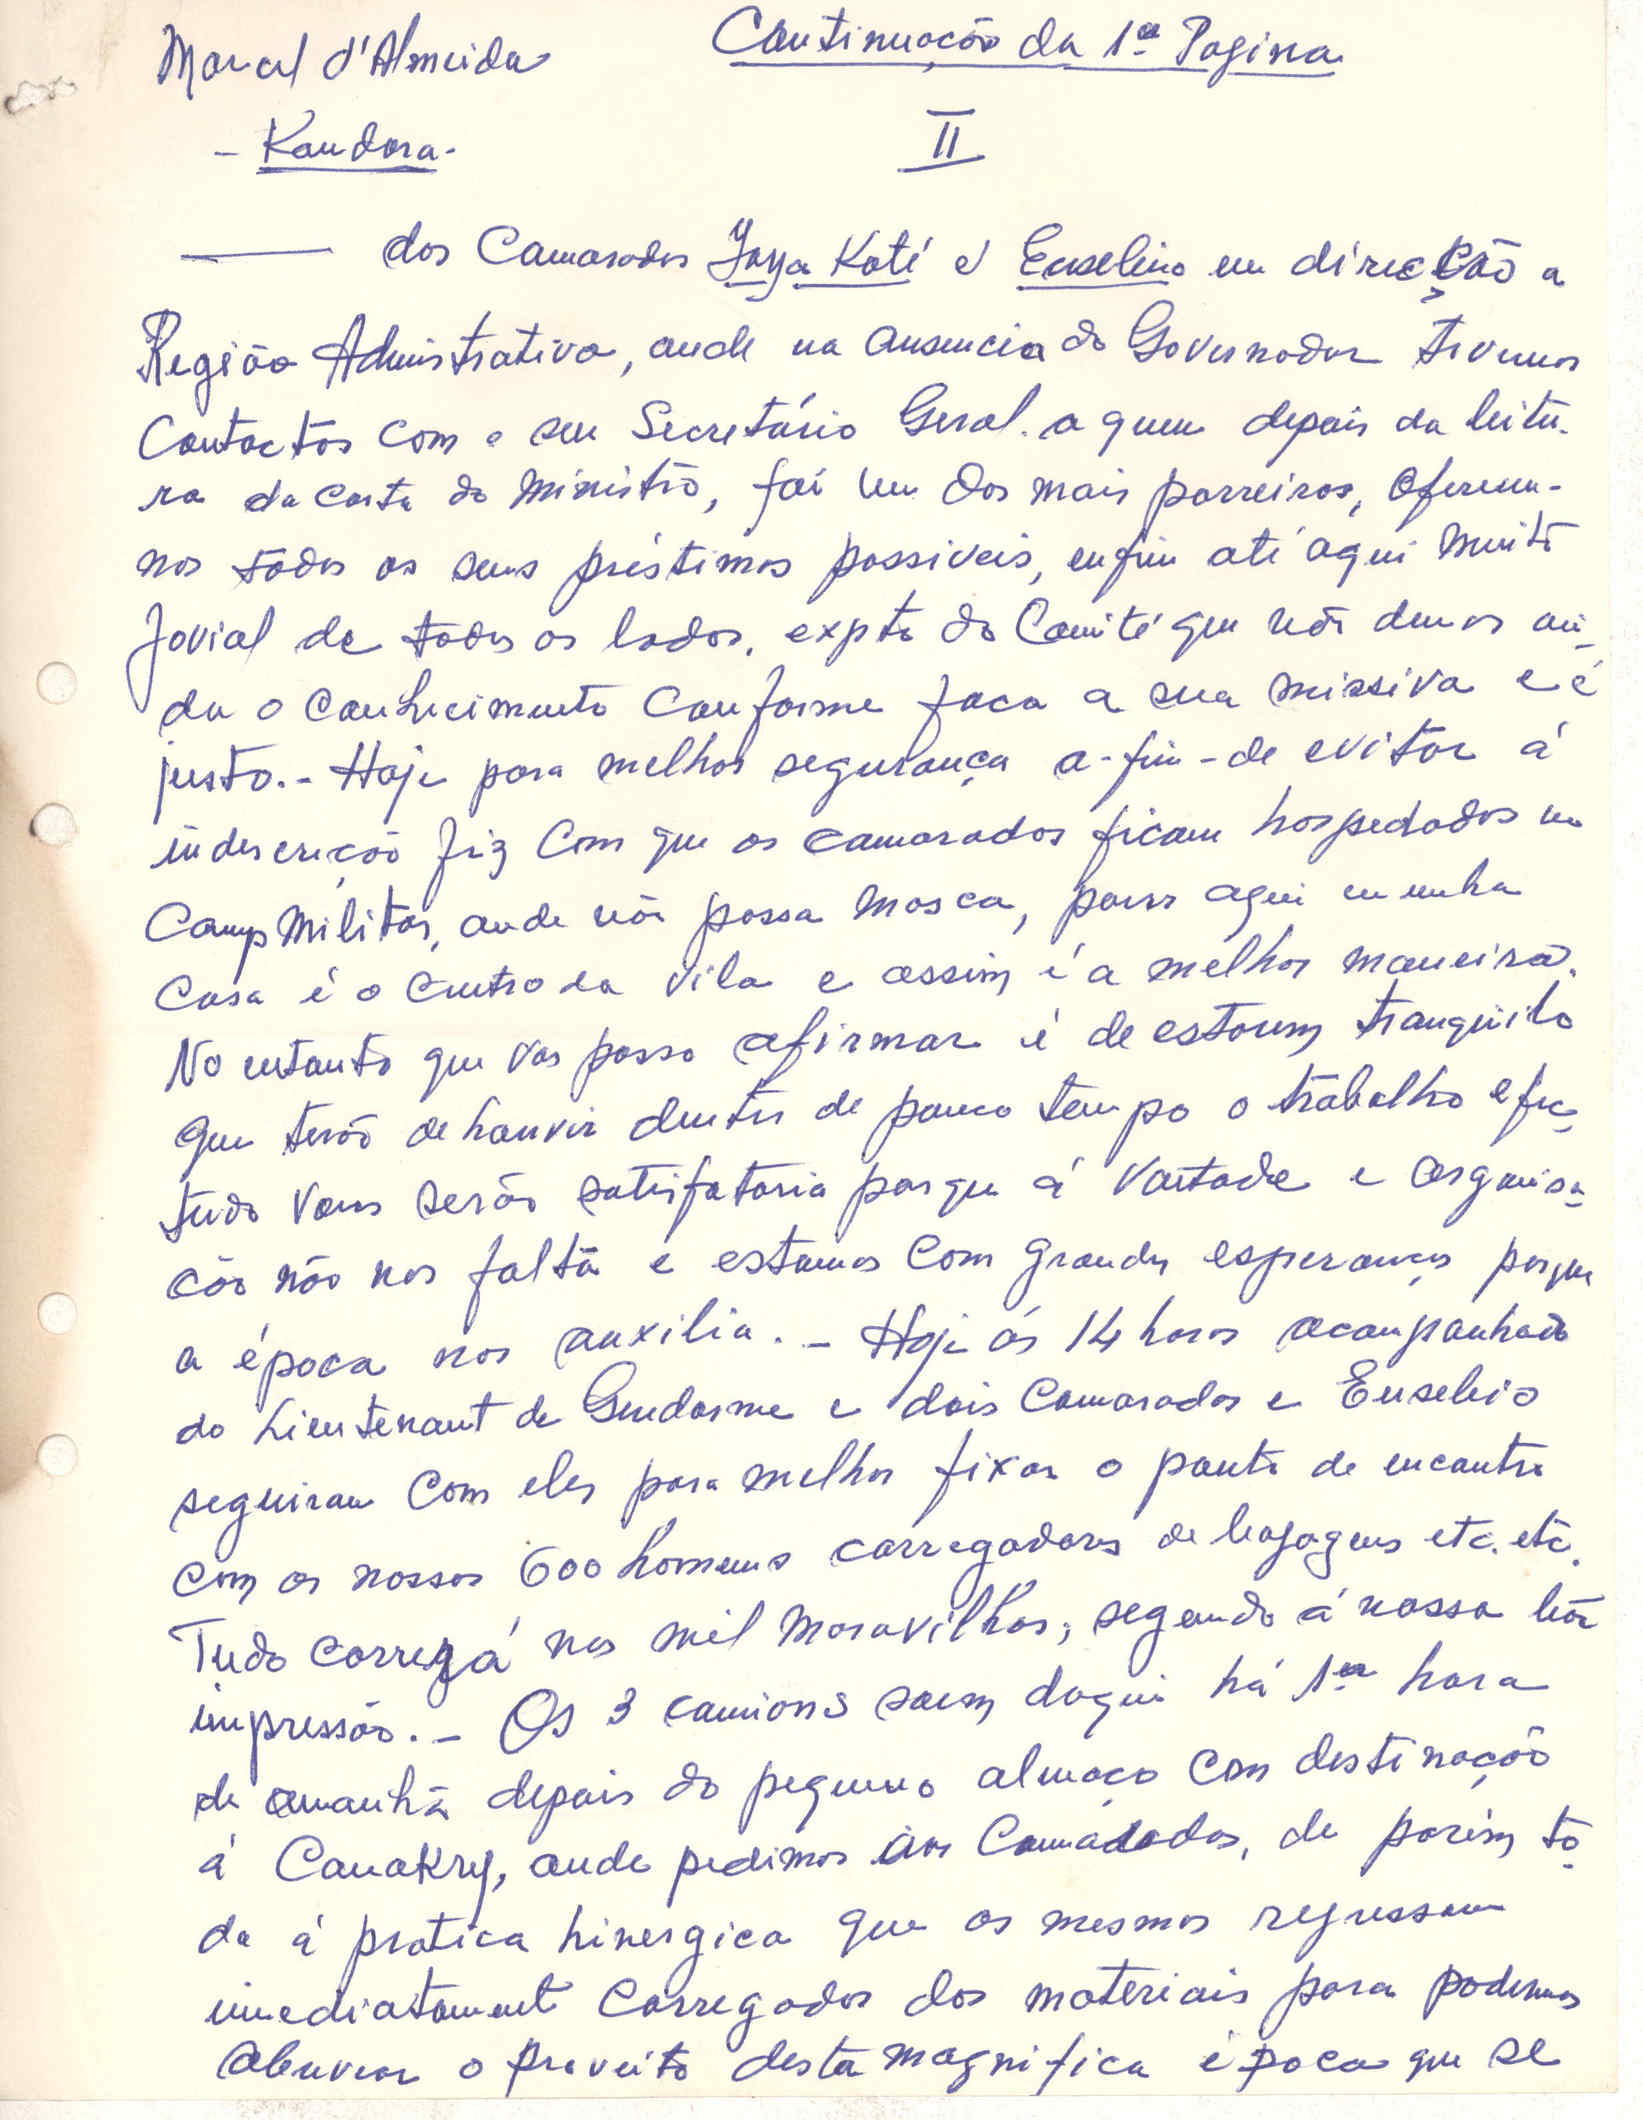 Marcel d'Almeida
Continuação da 1ª Pagina
- Kandora -
II
dos Camarados Yaya Koté e Euselino em direcção a
Região Admistrativa, onde na ausencia do Governador tivemos
Contactos com o seu Secretário Geral. a quem depois da leitu-
ra da carta do Ministro, foi um dos mais porreiros, Ofereceu-
nos todos os seus préstimos possiveis, enfim até aqui muito
Jovial de todos os lados, expto do Comité que não demos ain-
da o conhecimento conforme foca a sua missiva e é
justo. - Hoje para melhor segurança a-fim-de evitar á
indescrição fiz com que os camarados ficam hospedados no
Camp Militar, onde não possa mosca, porr aqui em minha
Casa é o centro da vila e assim é a melhor maneira.
No entanto que vos posso afirmar é de estarem tranquilo
que terão de houvir dentro de pouco tempo o trabalho efec-
tudo vons serão satisfatoria porque á vontade e organisa-
cão não nos falta e estamos com grandes esperanças porque
a época nos auxilia. - Hoje ás 14 horas acompanhado
do Lieutenant de Gendarme e dois Camarados e Eusebio
seguiram com eles para melhor fixar o ponto de encontro
com os nossos 600 homens carregadores de bagagens etc. etc.
Tudo correrá nas mil maravilhas, segundo á nossa bôa
impressão. - Os 3 camions saem daqui há 1ª hora
de amanhã depois do pequeno almoço com destinação
á Conakry, onde pedimos aos Camaradas, de porém to-
da á pratica hinergica que os mesmos regressam
imediatament carregados dos materiais para podermos
o proveito desta magnifica época que se